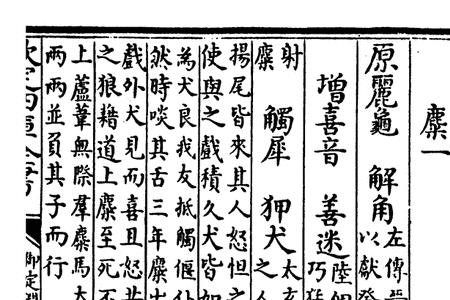 麋一
原麗龜 解角 左傳
以獻
增喜音 善迷 陸佃
巧
射
麋 觸犀 狎犬 太
之人
揚尾皆來其人怒怛之
使與之戲積久犬皆如
為犬良我友抵觸偃仆
然時啖其舌三年麋出
戲外犬見而喜且怒共
之狼藉道上麋至死不
上蘆葦無際羣麋馬大
兩兩並負其子而行
欽定四庫全書
御定